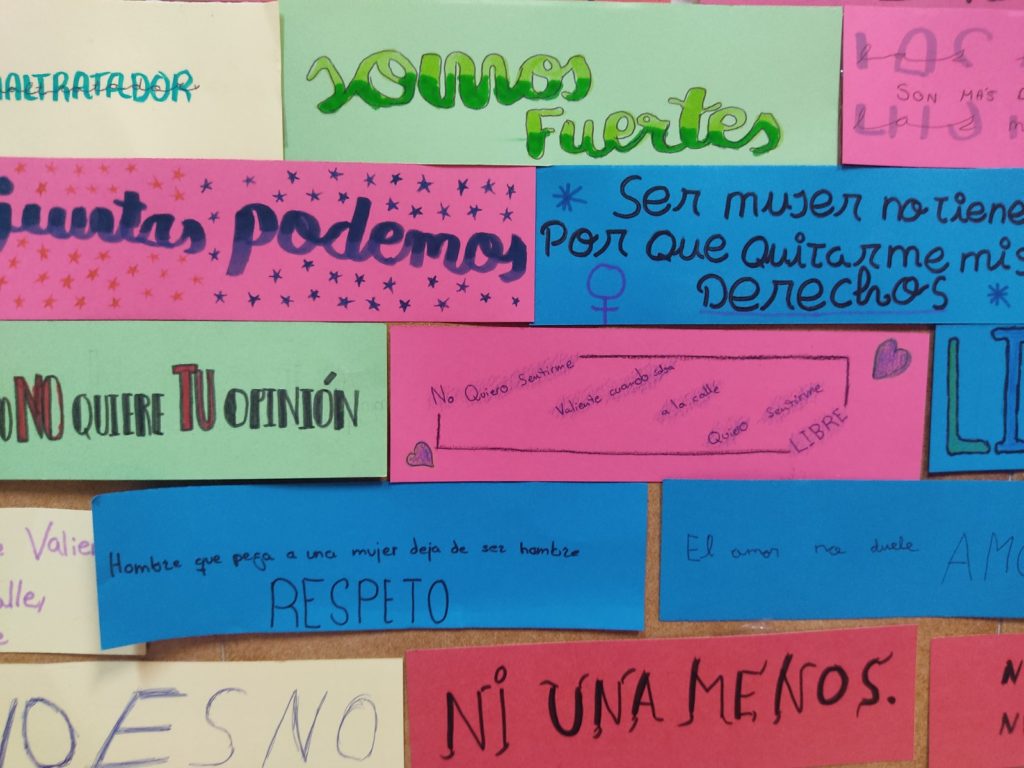 MALTRATADOR
somos
Fuertes
SON MÁS
juntas podemos
Ser mujer no tiene
Por que quitarme mis
Derechos
NO QUIERE TU OPINIÓN
No Quiero Sentirme
Valiente cuando salga
a la calle
Quiero Sentirme
LIBRE
LI
e Valien
alle,
e
Hombre que pega a una mujer deja de ser hombre
RESPETO
El amor no duele
AMO
NO ES NO
NI UNA MENOS.
N
N